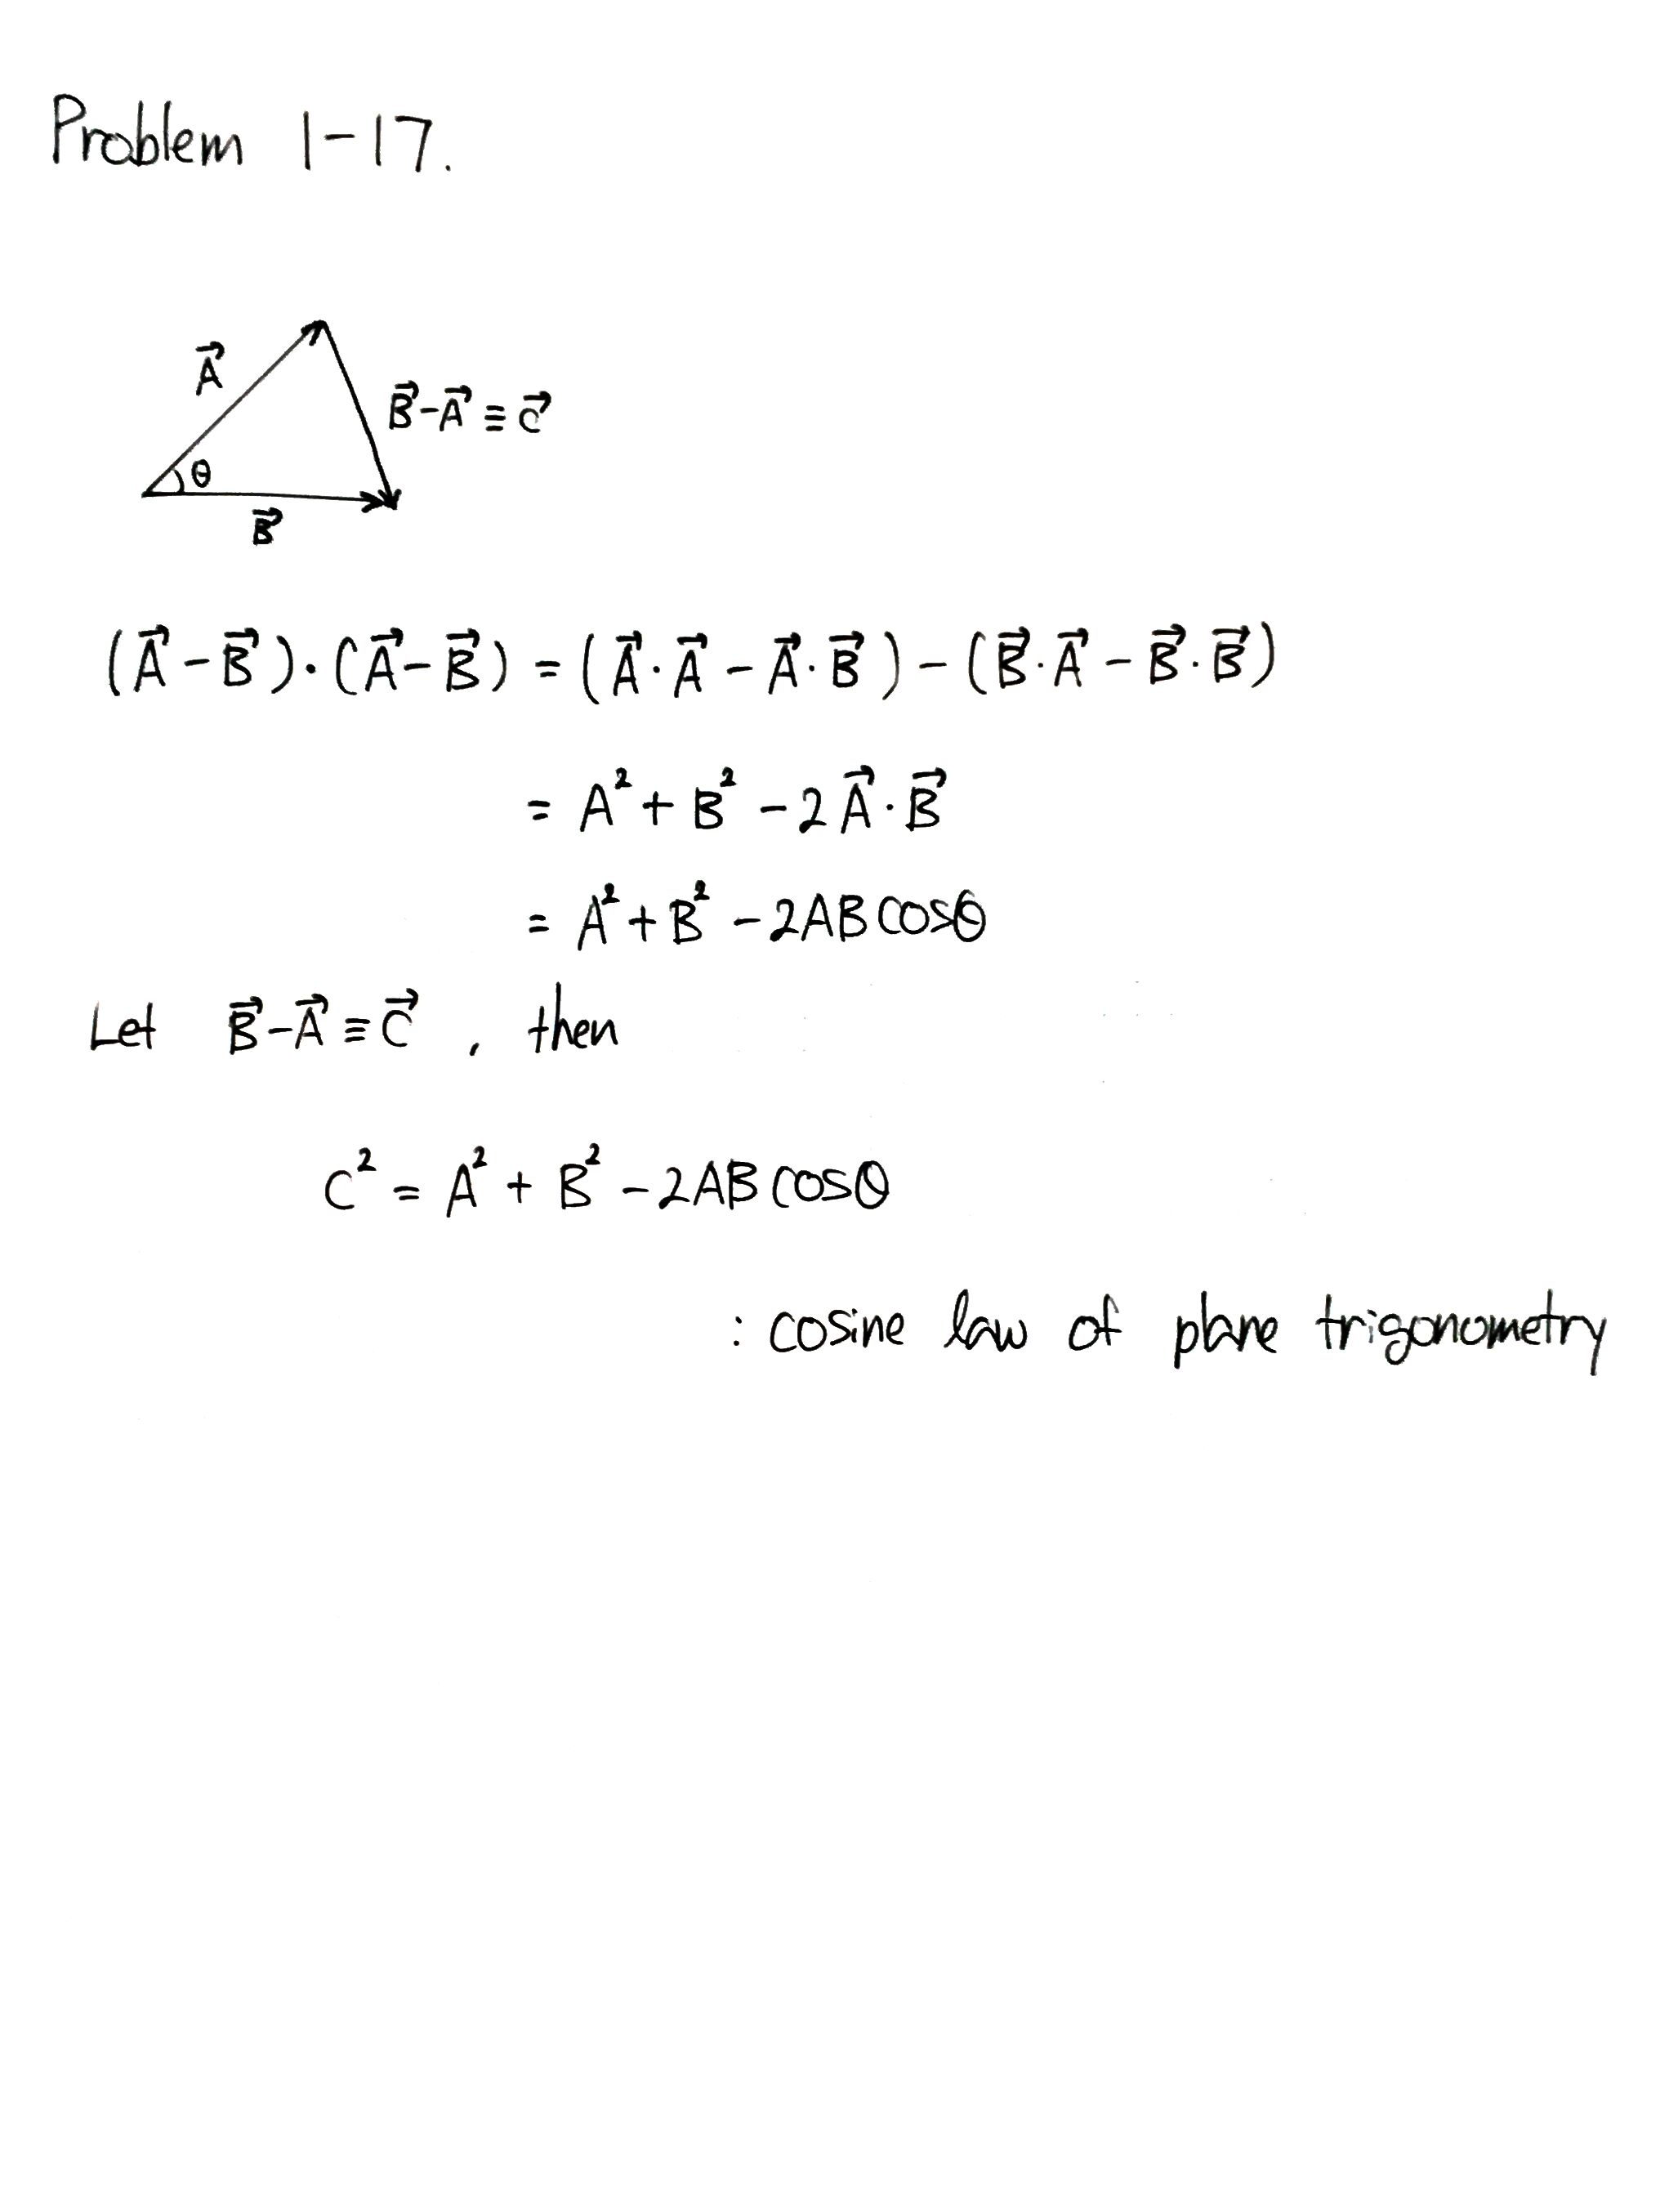 Problem 1-17.
A⃗
B⃗-A⃗ ≡ C⃗
θ
B⃗
(A⃗-B⃗)·(A⃗-B⃗) = (A⃗·A⃗ - A⃗·B⃗) - (B⃗·A⃗ - B⃗·B⃗)
= A² + B² - 2A⃗·B⃗
= A² + B² - 2ABcosθ
Let B⃗-A⃗ ≡ C⃗ , then
C² = A² + B² - 2ABcosθ
: cosine law of plane trigonometry